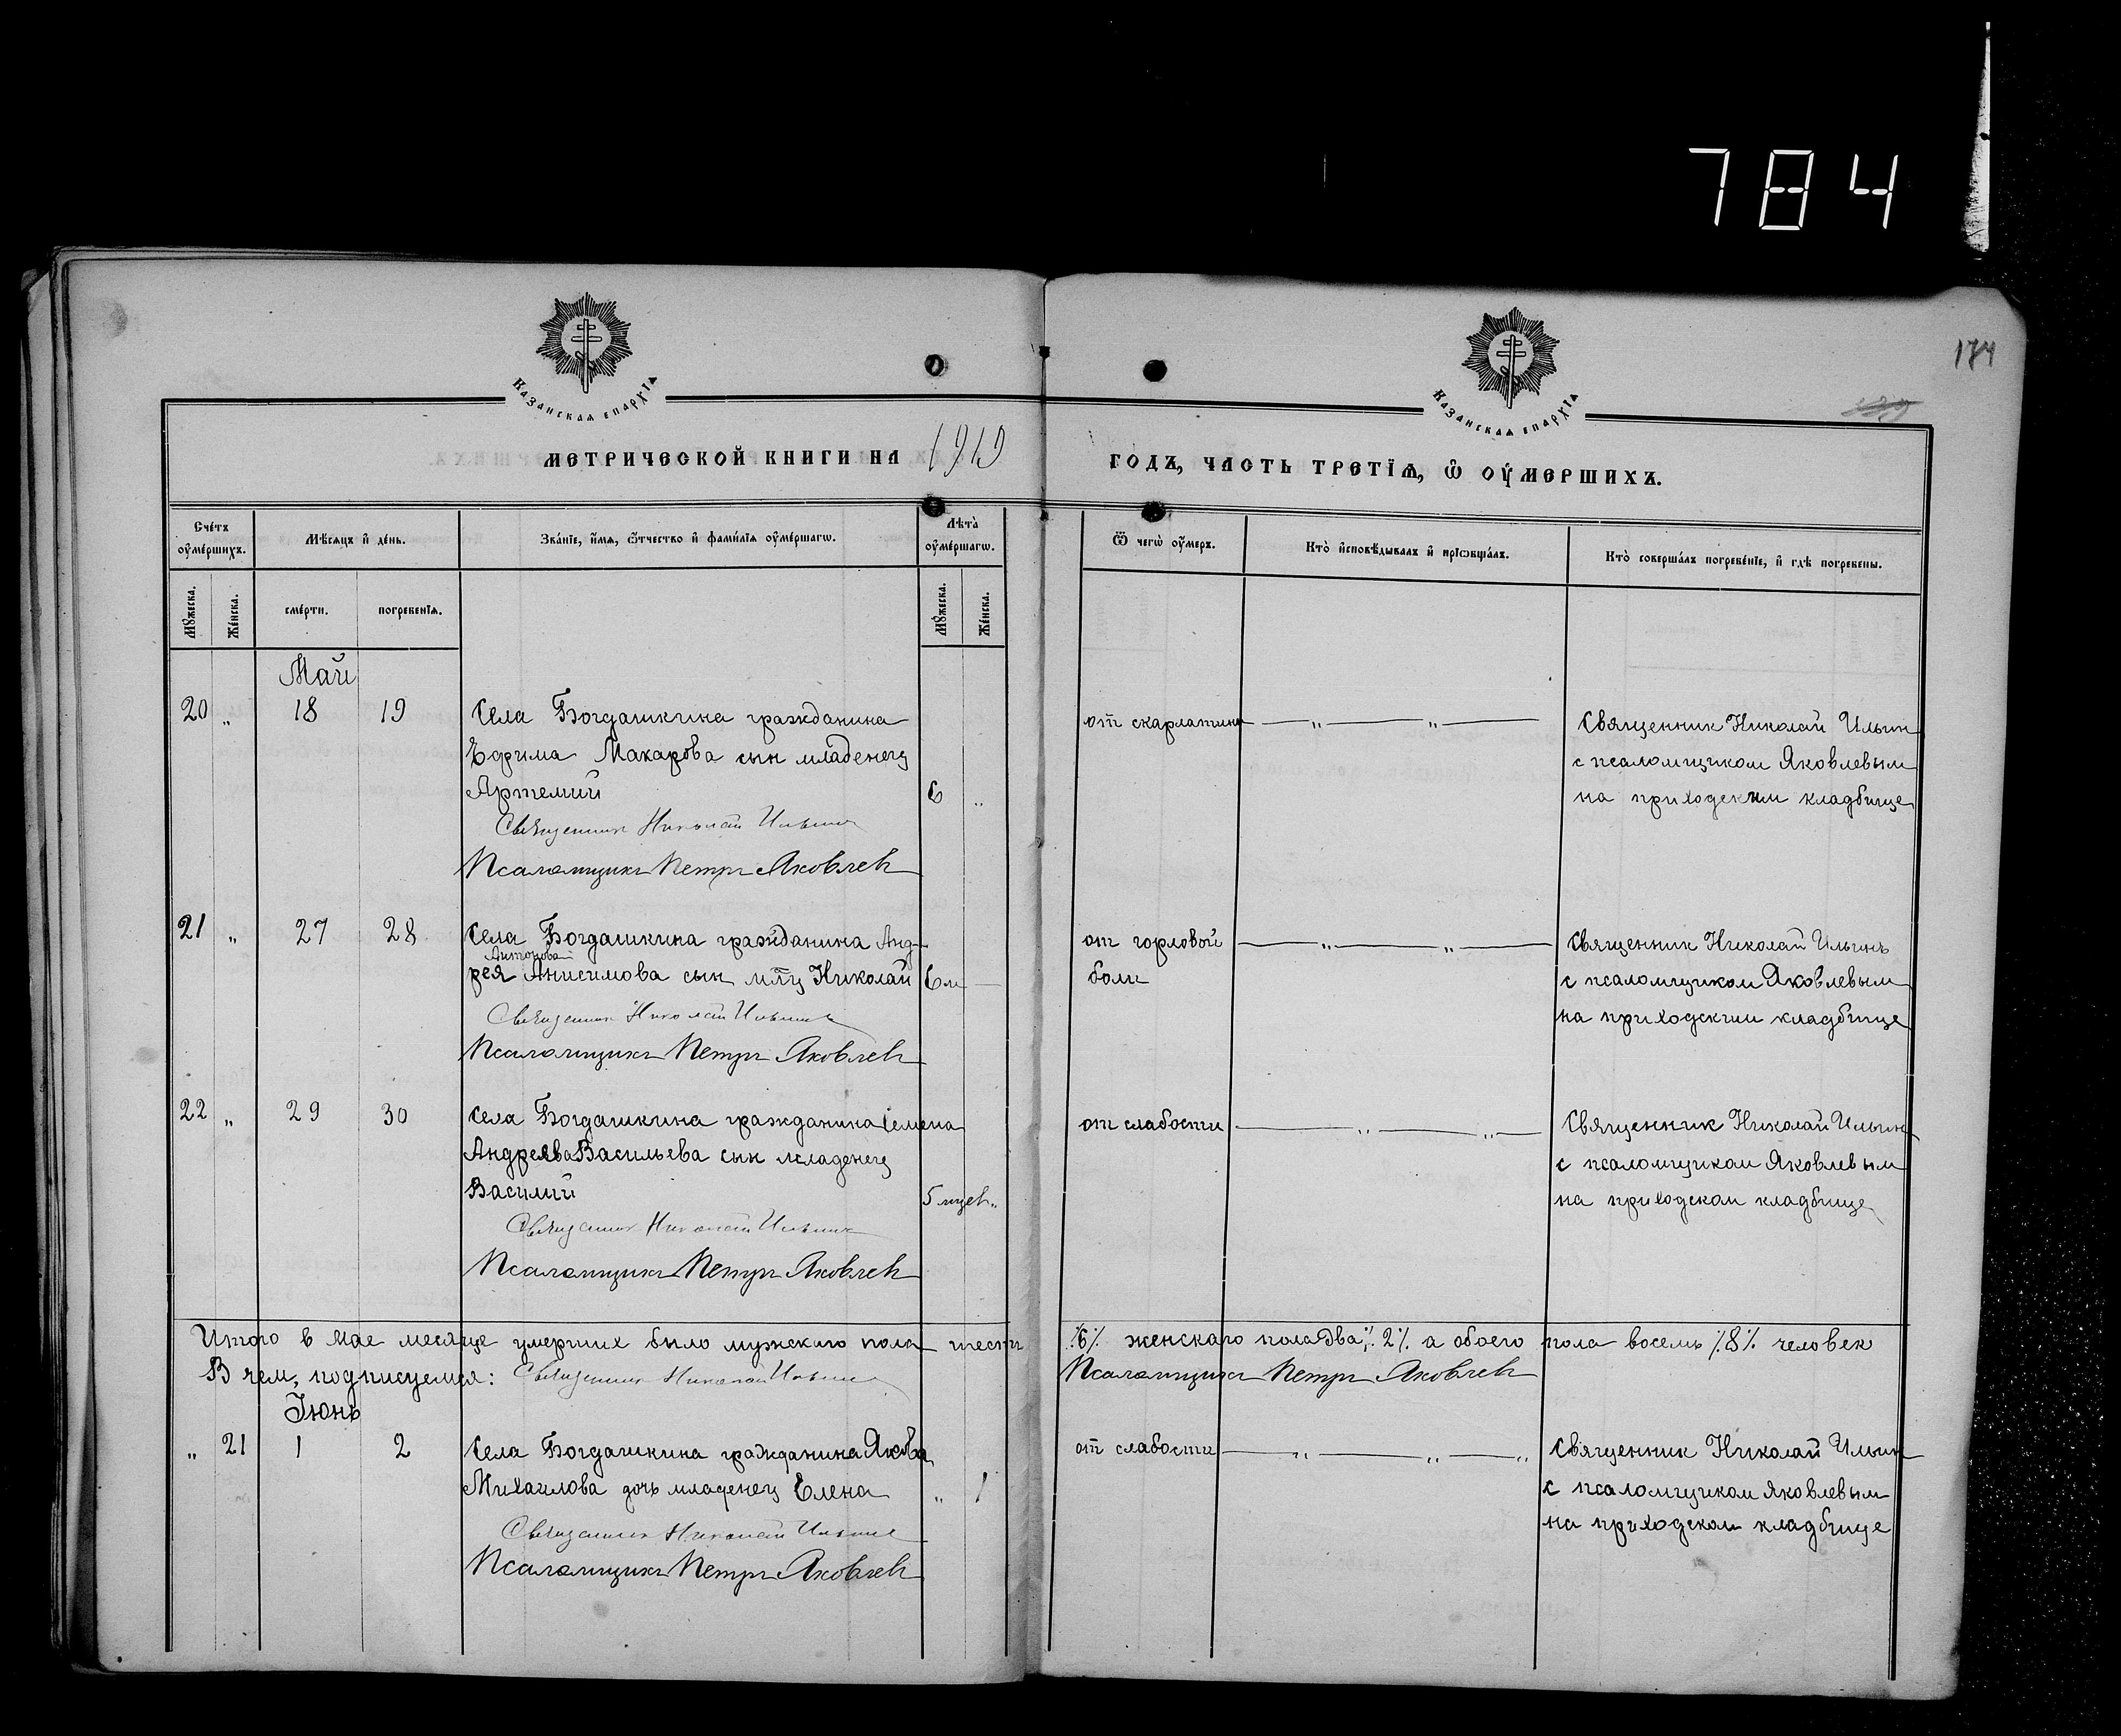 784
174
139
Казанская епархїѧ
Казанская епархїѧ
МЕТРИЧЕСКОЙ КНИГИ НА 1919
ГОДЪ, ЧАСТЬ ТРЕТЇѦ, Ѽ ОУМЕРШИХЪ.
Счетъ оумершихъ.
Мѣсѧцъ и день.
Званїе, имѧ, ѿтчество и фамилїѧ оумершагѡ.
Лѣта оумершагѡ.
Ѿ чегѡ оумеръ.
Кто исповѣдывалъ и прїѡбщалъ.
Кто совершалъ погребенїе, и гдѣ погребены.
Мꙋжеска.
Женска.
смерти.
погребенїѧ.
Мꙋжеска.
Женска.
Май
20 „ 18 19 Села Богдашкина гражданина
Ефима Макарова сын младенец
Артемий 6 „
Священник Николай Ильин
Псаломщикъ Петръ Яковлев
от скарлатины — „ — „ — Священник Николай Ильин
с псаломщиком Яковлевым
на приходским кладбище
21 „ 27 28 Села Богдашкина гражданина Анд-
Антонова
рея Анисимова сын мл̅ц Николай 6 м —
Священник Николай Ильин
Псаломщикъ Петръ Яковлев
от горловой — „ — „ — Священник Николай Ильинъ
боли с псаломщиком Яковлевым
на приходским кладбище
22 „ 29 30 Села Богдашкина гражданина Семена
Андреева Васильева сын младенец
Василий 5 мцев „
Священник Николай Ильин
Псаломщикъ Петръ Яковлев
от слабости — „ — „ — Священник Николай Ильин
с псаломщиком Яковлевым
на приходском кладбище
Итого в мае месяце умерших было мужского пола шесть ٪6٪ женскаго пола два ٪2٪ а обоего пола восемь ٪8٪ человек
В чем, подписуемся: Священник Николай Ильин Псаломщикъ Петръ Яковлев
Iюнь
„ 21 1 2 Села Богдашкина гражданина Якова
Михаилова дочь младенец Елена „ 1
Священник Николай Ильин
Псаломщикъ Петръ Яковлев
от слабости — „ — „ — „ Священник Николай Ильин
с псаломщиком Яковлевым
на приходском кладбище